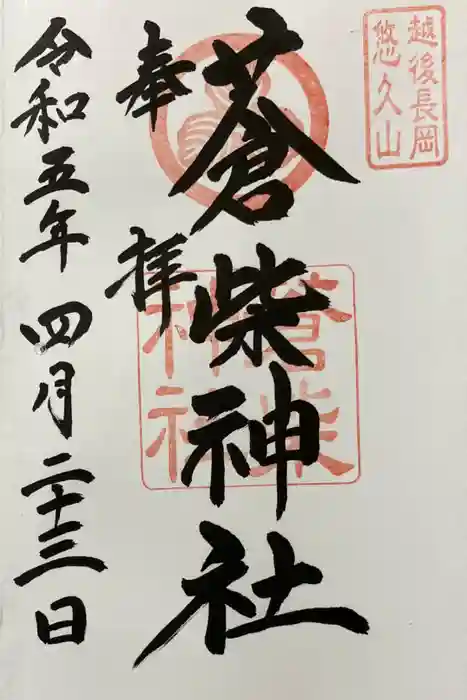 越後長岡
悠久山
奉拝
蒼柴神社
蒼柴
神社
令和五年四月二十三日